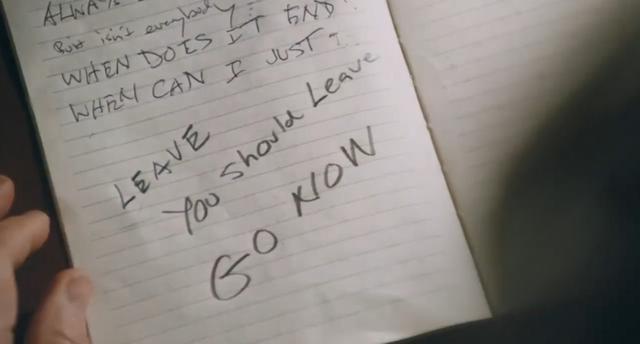 ALWAYS
But isn't everybody?
WHEN DOES IT END?
WHEN CAN I JUST?
LEAVE
You Should Leave
GO NOW